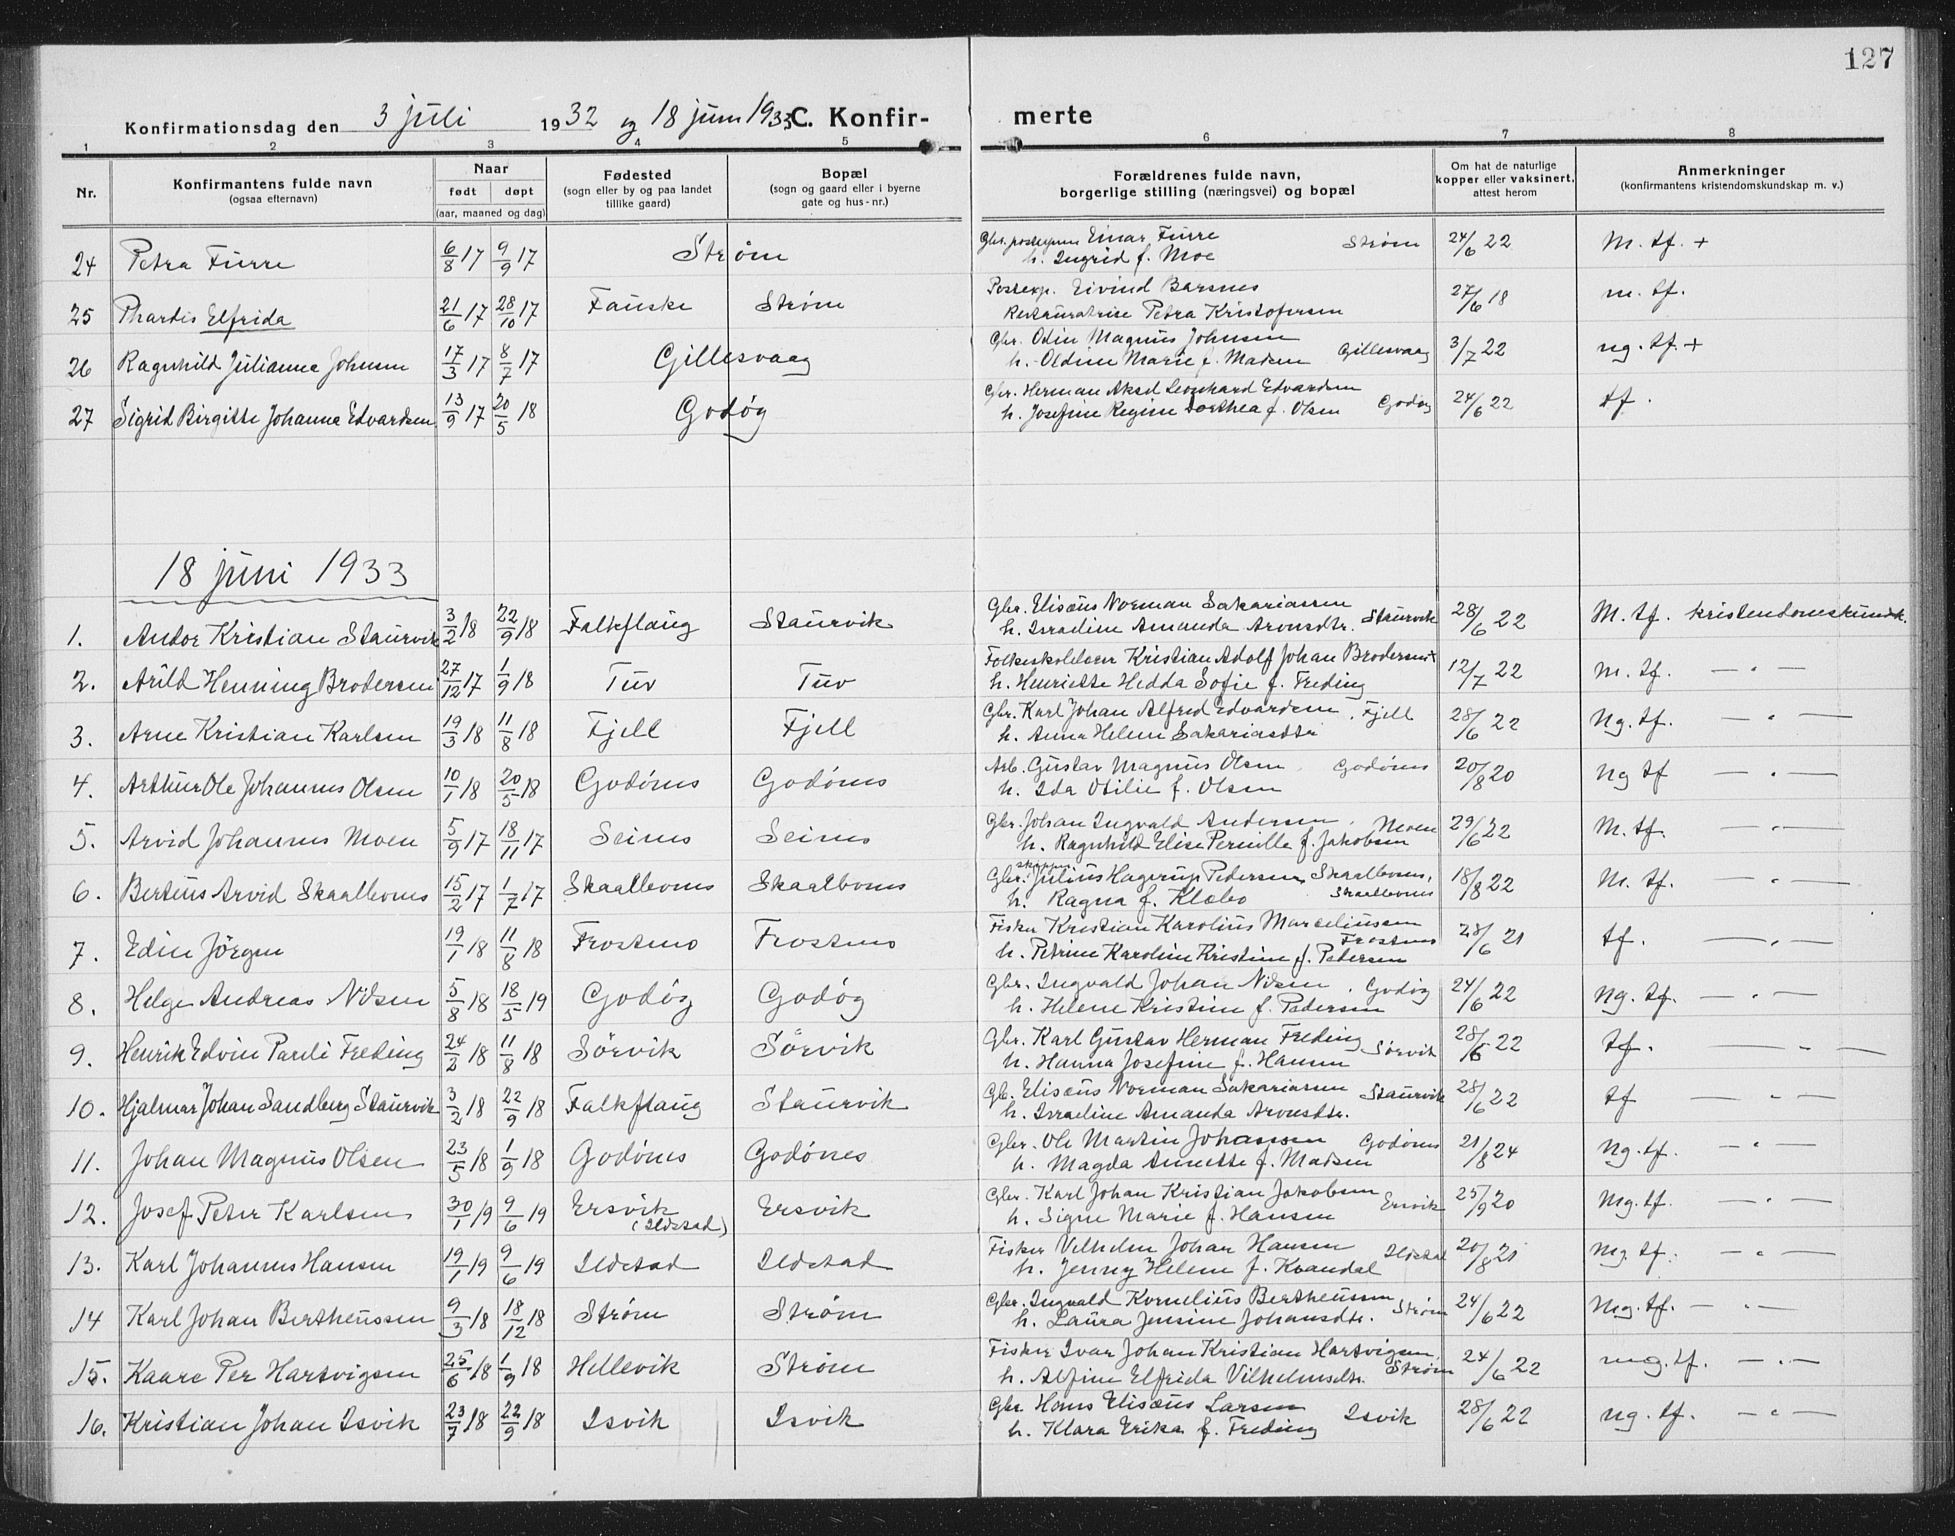 127
Konfirmationsdag den 3 juli 1932 og 18 juni 1933 C. Konfirmerte
1 2 3 4 5 6 7 8
Nr. Konfirmantens fulde navn (ogsaa efternavn) Naar født døpt (aar, maaned og dag) Fødested (sogn eller by og paa landet tillike gaard) Bopæl (sogn og gaard eller i byerne gate og hus-nr.) Forældrenes fulde navn, borgerlige stilling (næringsvei) og bopæl Om hat de naturlige kopper eller vaksinert, attest herom Anmerkninger (konfirmantens kristendomskundskap m. v.)
24 Petra Furre 6/8 17 9/9 17 Strøm Gbr. Einar Furre Strøm 24/6 22 M. tf. +
h. Ingrid f. Moe
25 Thardis Elfrida 21/6 17 28/10 17 Fauske Strøm Postexp. Eivind Barsnes 27/6 18 m. tf.
Petra Kristofersen
26 Ragnhild Julianne Johnsen 17/3 17 8/7 17 Gillesvaag Gbr. Odin Magnus Johnsen 3/7 22 ng. tf. +
h. Oldine Marie f. Madsen Gillesvaag
27 Sigrid Birgitte Johanna Edvardsen 13/9 17 20/5 18 Godøy Gbr. Herman Aksel Leonhard Edvardsen 24/6 22 tf.
h. Josefine Regine Dorthea f. Olsen Godøy
18 juni 1933
1. Andor Kristian Staurvik 3/2 18 22/9 18 Falkflaug Staurvik Gbr. Elisæus Norman Sakariassen Staurvik 28/6 22 M. tf. kristendomskundsk.
h. Israeline Amanda Aronsdtr.
2. Arild Henning Brodersen 27/12 17 1/9 18 Tuv Tuv Folkeskolelærer Kristian Adolf Johan Brodersen 12/7 22 m. tf. — " —
h. Henriette Hedda Sofie f. Freding
3. Arne Kristian Karlsen 19/3 18 11/8 18 Fjell Fjell Gbr. Karl Johan Alfred Edvardsen, Fjell 28/6 22 Ng. tf. — " —
h. Anna Helene Sakariasdtr
4. Arthur Ole Johannes Olsen 10/1 18 20/5 18 Godønes Godønes Arb. Gustav Magnus Olsen Godønes 20/8 20 Ng tf — " —
h. Ida Otilie f. Olsen
5. Arvid Johannes Moen 5/9 17 18/11 17 Seines Seines Gbr. Johan Ingvald Andersen, Moen 29/6 22 M. tf. — " —
h. Ragnhild Elise Pernille f. Jakobsen
6. Berteus Arvid Skaalbones 15/2 17 1/7 17 Skaalbones Skaalbones Gbr. skipper Julius Hagerup Pedersen Skaalbones, 18/8 22 M. tf. — " —
h. Ragna f. Klæbo Skaalbones
7. Edin Jørgen 19/1 18 11/8 18 Frostmo Frostmo Fisker Kristian Karolius Marceliussen Frostmo 28/6 21 tf. — " —
h. Petrine Karoline Kristine f. Pedersen
8. Helge Andreas Nilsen 5/8 18 18/5 19 Godøy Godøy Gbr. Ingvald Johan Nilsen, Godøy 24/6 22 Ng. tf. — " —
h. Helene Kristine f. Pedersen
9. Henrik Edvin Pauli Freding 24/2 18 11/8 18 Sørvik Sørvik Gbr. Karl Gustav Herman Freding Sørvik 28/6 22 tf. — " —
h. Hanna Josefine f. Hansen
10. Hjalmar Johan Sandberg Staurvik 3/2 18 22/9 18 Falkflaug Staurvik Gb. Elisæus Norman Sakariassen Staurvik 28/6 22 tf — " —
h. Israeline Amanda Aronsdtr.
11. Johan Magnus Olsen 23/5 18 1/9 18 Godønes Godønes Gbr. Ole Martin Johansen Godønes 21/8 24 Ng. tf. — " —
h. Magda Annette f. Madsen
12. Josef Peter Karlsen 30/1 19 9/6 19 Ersvik (Ildstad) Ersvik Gbr. Karl Johan Kristian Jakobsen Ersvik 25/9 20 Mg. tf. — " —
h. Signe Marie f. Hansen
13. Karl Johannes Hansen 19/1 19 9/6 19 Ildstad Ildstad Fisker Vilhelm Johan Hansen Ildstad 20/8 21 Mg. tf. — " —
h. Jenny Helene f. Kvandal
14 Karl Johan Bertheussen 9/3 18 18/12 18 Strøm Strøm Gbr. Ingvald Kornelius Bertheussen Strøm 24/6 22 Mg. tf. — " —
h. Laura Jensine Johansdtr.
15. Kaare Per Hartvigsen 25/6 18 1/9 18 Hellevik Strøm Fisker Ivar Johan Kristian Hartvigsen, Strøm 24/6 22 mg. tf. — " —
h. Alfine Elfrida Vilhelmsdtr.
16. Kristian Johan Isvik 23/7 18 22/9 18 Isvik Isvik Gbr. Hans Elisæus Larsen Isvik 28/6 22 Ng. tf. — " —
h. Klara Erika f. Freding